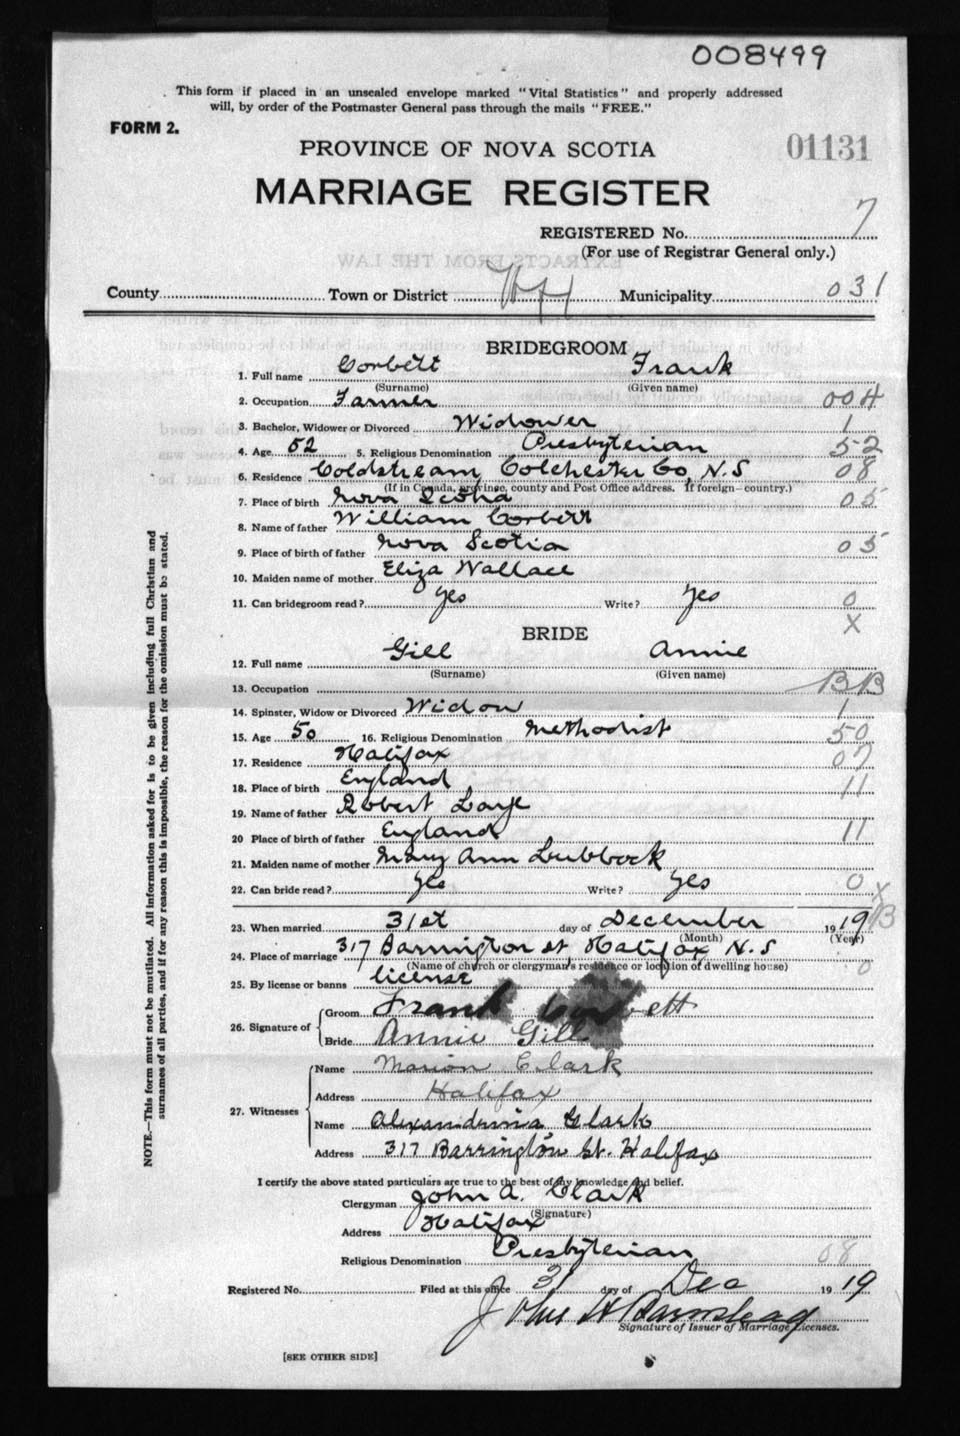 008499
This form if placed in an unsealed envelope marked "Vital Statistics" and properly addressed
will, by order of the Postmaster General pass through the mails "FREE."
FORM 2.
PROVINCE OF NOVA SCOTIA
01131
MARRIAGE REGISTER
REGISTERED No. 7
(For use of Registrar General only.)
County Town or District Municipality 031
BRIDEGROOM
1. Full name Corbett Frank
(Surname) (Given name)
2. Occupation Farmer 004
3. Bachelor, Widower or Divorced Widower 1
4. Age 52 5. Religious Denomination Presbyterian 52
6. Residence Coldstream Colchester Co, N.S 08
(If in Canada, province, county and Post Office address. If foreign—country.)
7. Place of birth Nova Scotia 05
8. Name of father William Corbett
9. Place of birth of father Nova Scotia 05
10. Maiden name of mother Eliza Wallace
11. Can bridegroom read? Yes Write? Yes 0
X
BRIDE
12. Full name Gill Annie
(Surname) (Given name)
13. Occupation BB
14. Spinster, Widow or Divorced Widow 1
15. Age 50 16. Religious Denomination Methodist 50
17. Residence Halifax 07
18. Place of birth England 11
19. Name of father Robert
20 Place of birth of father England 11
21. Maiden name of mother Mary Ann Lubbock
22. Can bride read? Yes Write? Yes 0
X
23. When married 31st day of December 1919 B
(Month) (Year)
24. Place of marriage 317 Barrington st, Halifax N.S
(Name of church or clergyman's residence or location of dwelling house) 0
25. By license or banns license
26. Signature of Groom Frank Corbett
Bride Annie Gill
27. Witnesses Name Marion Clark
Address Halifax
Name Alexandrina Clark
Address 317 Barrington St. Halifax
I certify the above stated particulars are true to the best of my knowledge and belief.
Clergyman John A. Clark
(Signature)
Address Halifax
Religious Denomination Presbyterian 08
Registered No. Filed at this office 31 day of Dec 1919
John H Barnstead
Signature of Issuer of Marriage Licenses.
[SEE OTHER SIDE]
NOTE.—This form must not be mutilated. All information asked for is to be given including full Christian and
surnames of all parties, and if for any reason this is impossible, the reason for the omission must be stated.